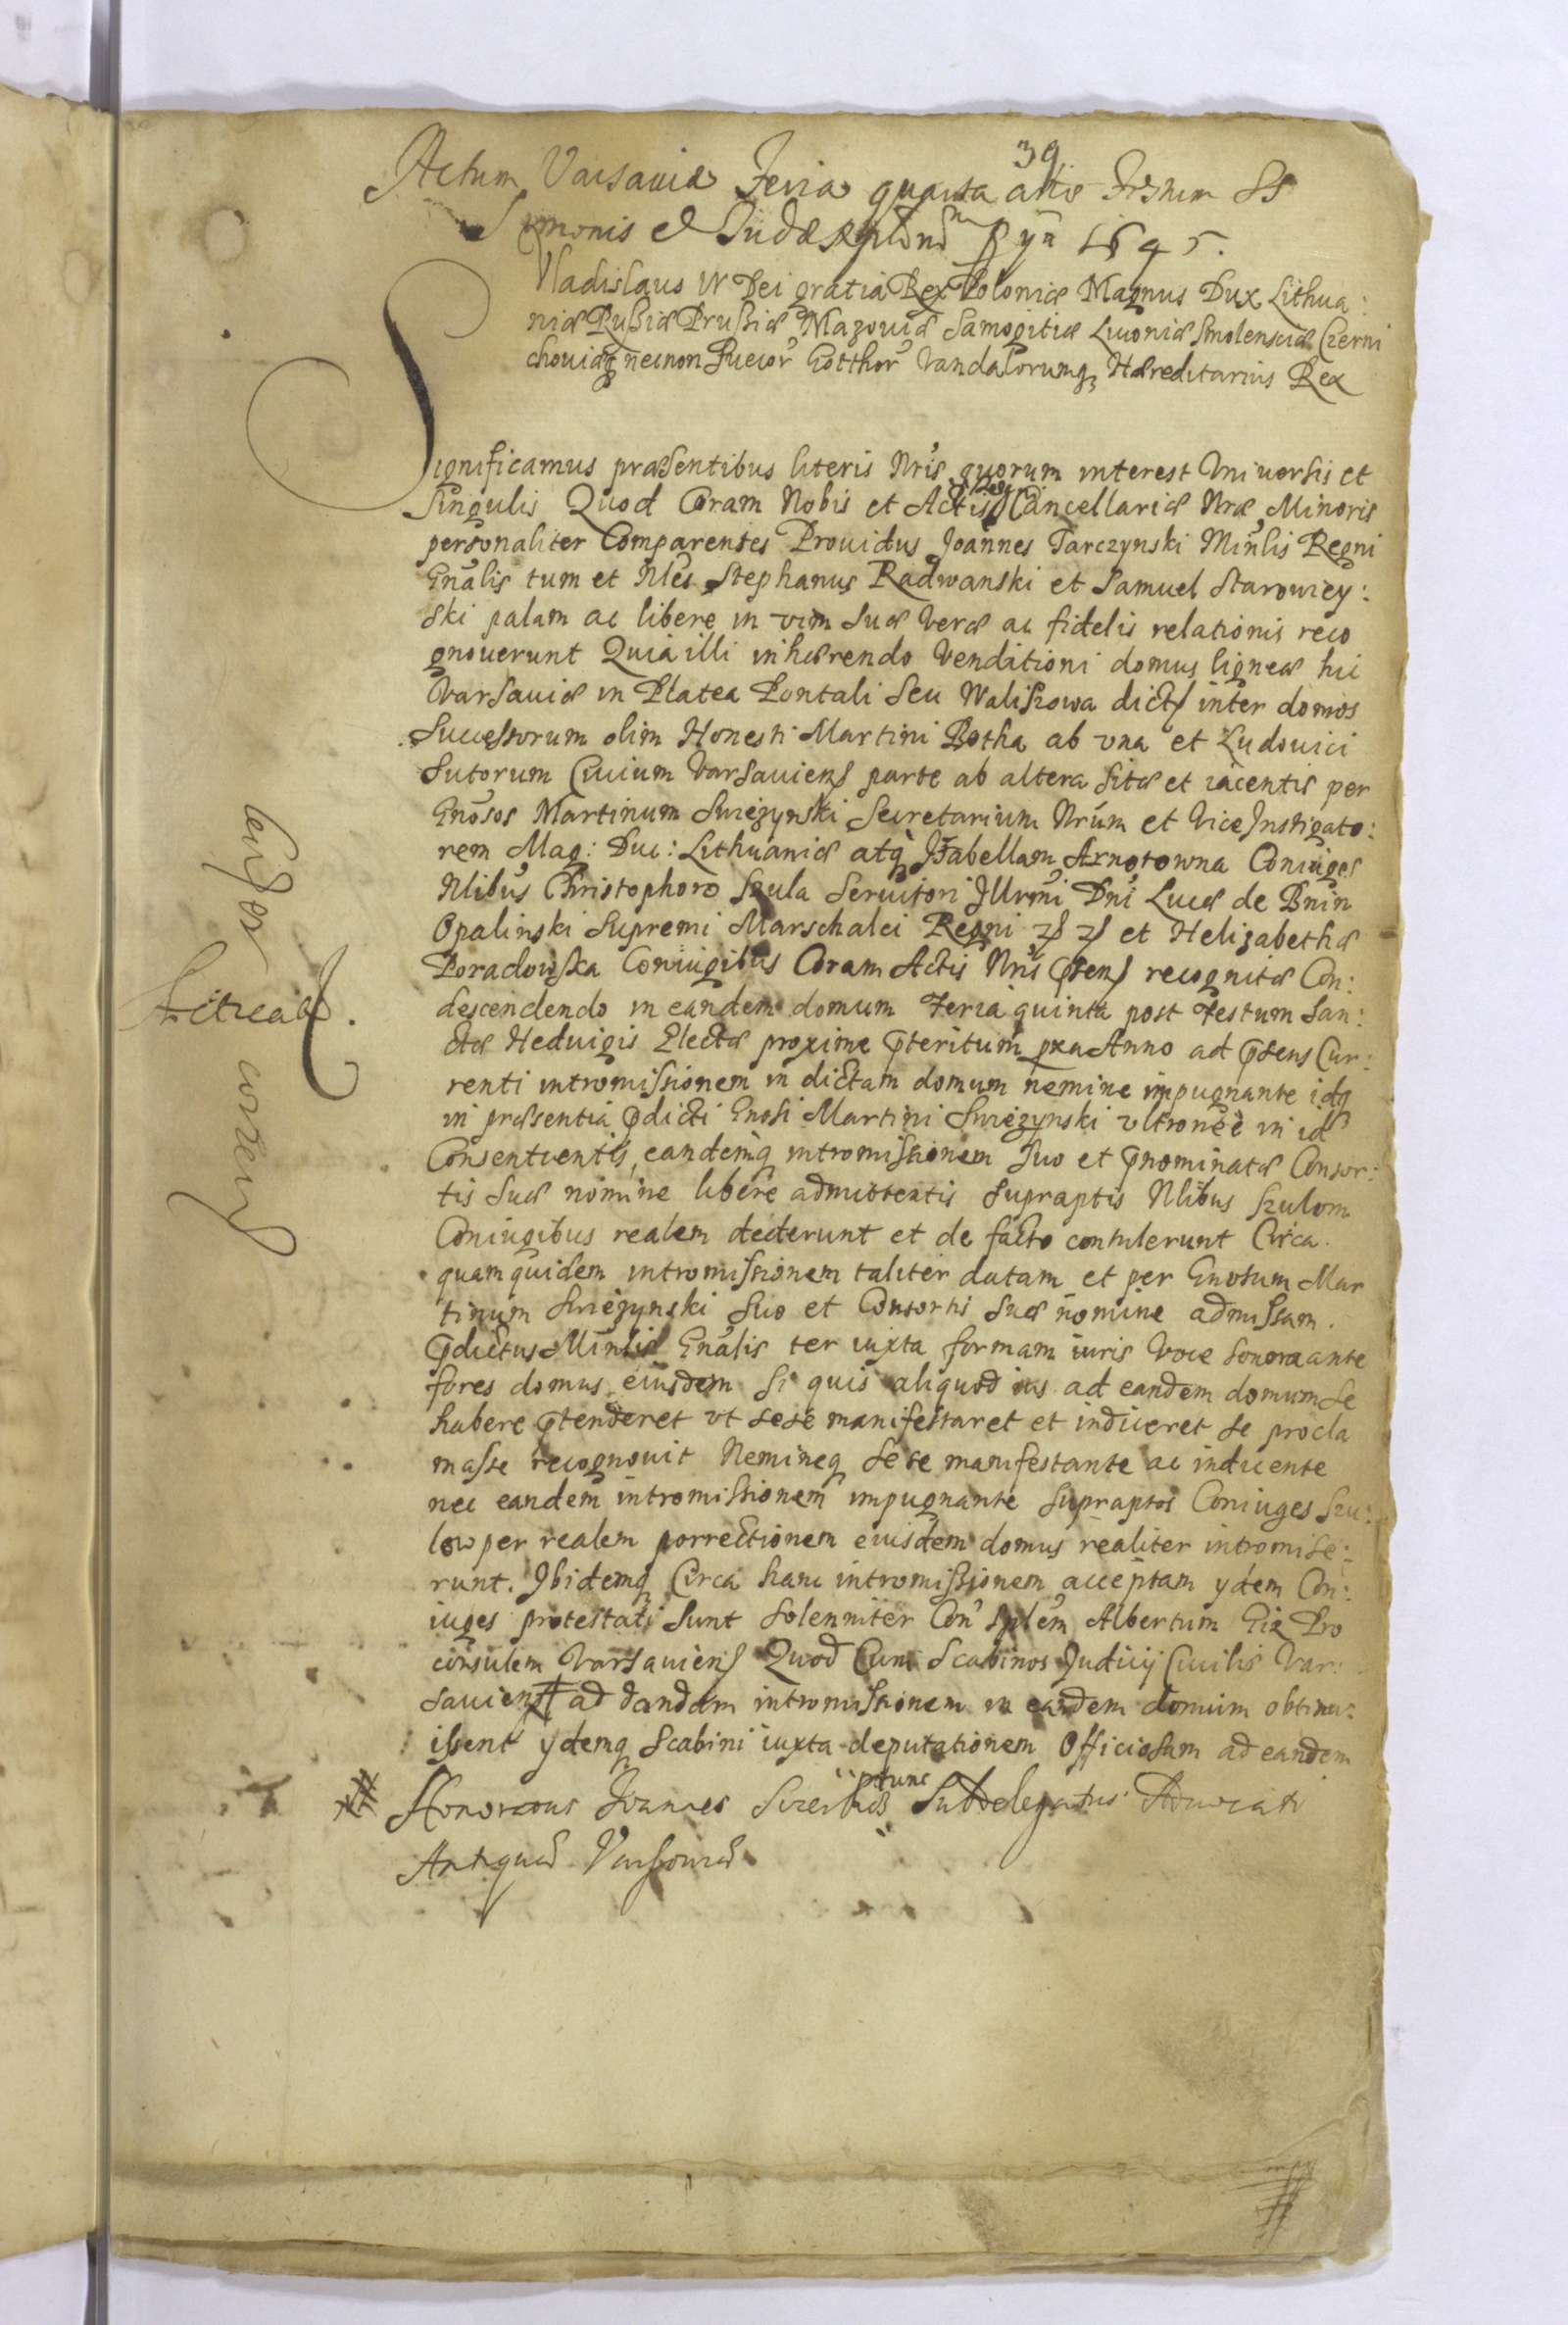 39
Actum Varsauiæ Feria quarta ante Festum SS
Symonis et Judæ 1645.
Vladislaus IV Dei gratia Rex Poloniæ Magnus Dux Lithua:
niæ Rußiæ Prußiæ Mazouiæ Samogitiæ Liuoniæ Smolensciæ Czerni
chouiæq necnon Sueior Gotthor Vandalorumq Hæreditarius Rex
Significamus præsentibus literis Nris quorum interest Vniuersis et
Singulis Quod Coram Nobis et Actis Cancellariæ Nræ Minoris
personaliter Comparentes Prouidus Joannes Tarczynski Minlis Regni
Gnalis tum et Nles Stephanus Radwanski et Samuel Starowiey:
ski palam ac libere in vim suæ veræ ac fidelis relationis reco
gnouerunt Quia illi inhærendo Venditioni domus ligneæ hic
Varsauiæ in Platea Pontali seu Waliszowa dict inter domos
Successorum olim Honesti Martini Botha ab vna et Ludouici
Sutorum Ciuium Varsauiens parte ab altera sitæ et iacentis per
Gnosos Martinum Swiezynski Secretarium Nrum et ViceInstigato:
rem Mag: Duc: Lithuaniæ atq Isabellam Arnotowna Coniuges
Nlibus Christophoro Szula Seruitori Illrmi Dni Lucæ de Bnin
Opalinski Supremi Marschalci Regni et Helizabethæ
Poradowska Coniugibus Coram Actis Nris psens recognitæ Con:
descendendo in eandem domum Feria quinta post Festum San:
ctæ Hedwigis Electæ proxime pteritum Anno ad psens Cur:
renti intromissionem in dictam domum nemine impugnante idq
in præsentia pdicti Gnosi Martini Swiezynski vltronee in id
Consentientis, eandemq intromissionem suo et pnominatæ Consor:
tis suæ nomine libere admittentis supraptis Nlibus Szulom
Coniugibus realem dederunt et de facto contulerunt Circa
quam quidem intromissionem taliter datam et per Gnosum Mar
tinum Swiezynski suo et Consortis suæ nomine admissam.
pdictus Minlis Gnalis ter iuxta formam iuris voce sonora ante
fores domus eiusdem si quis aliquod ius ad eandem domum se
habere ptenderet vt sese manifestaret et indiceret se procla
masse recognouit Nemineq sese manifestante ac indicente
nec eandem intromissionem impugnante supraptos Coniuges Szu:
low per realem porrectionem eiusdem domus realiter intromise:
runt. Ibidemq Circa hanc intromissionem acceptam ydem Con:
iuges protestati sunt solenniter Con Splem Albertum Giz Pro
consulem Varsauiens Quod Cum Scabinos Judicij Ciuilis Var:
sauiens # ad dandam intromissionem in eandem domum obtinu:
issent ydemq Scabini iuxta deputationem Officiosam ad eandem
# Honoratus Joannes ptunc Subdelegatus Aduocati
Antiquæ Varsouiæ